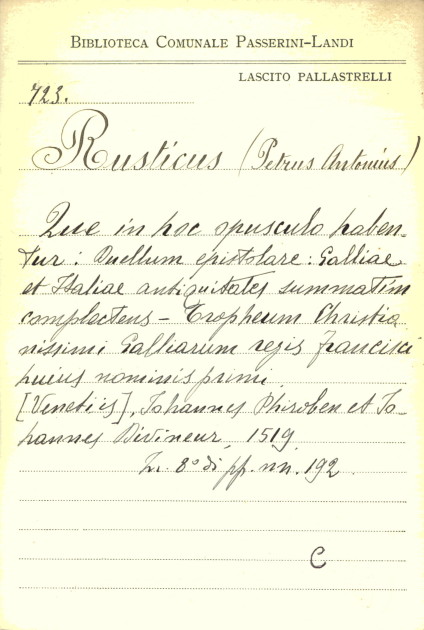 BIBLIOTECA COMUNALE PASSERINI-LANDI
LASCITO PALLASTRELLI
723.
Rusticus (Petrus Antonius)
Que in hoc opusculo haben-
tur: Duellum epistolare: Galliae
et Italiae antiquitates summatim
complectens - Tropheum Christia
nissimi Galliarum regis francisci
huius nominis primi
[Venetiis], Iohannes Phiroben et Io-
hannes Divineur, 1519
In 8° di pp. nn. 192
C